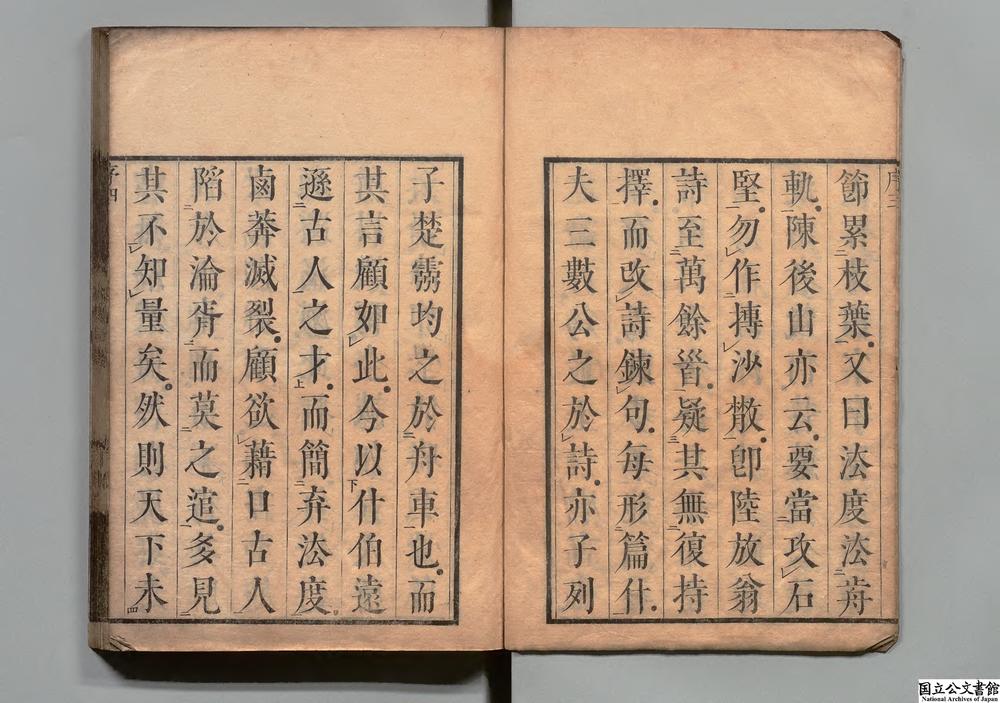 序三
節累枝葉。又曰法度法歬
軌。陳後山亦云。要當攻石
堅。勿作摶沙散。卽陸放翁
詩至萬餘首。疑其無復持
擇。而改詩鍊句。每形篇什。
夫三數公之於詩。亦子列
子楚霛均之於舟車也。而
其言顧如此。今以什伯遠
遜古人之才。而簡弃法度
鹵莽滅裂。顧欲藉口古人
陷於淪胥而莫之逭。多見
其不知量矣。然則天下未
序四
国立公文書館
National Archives of Japan